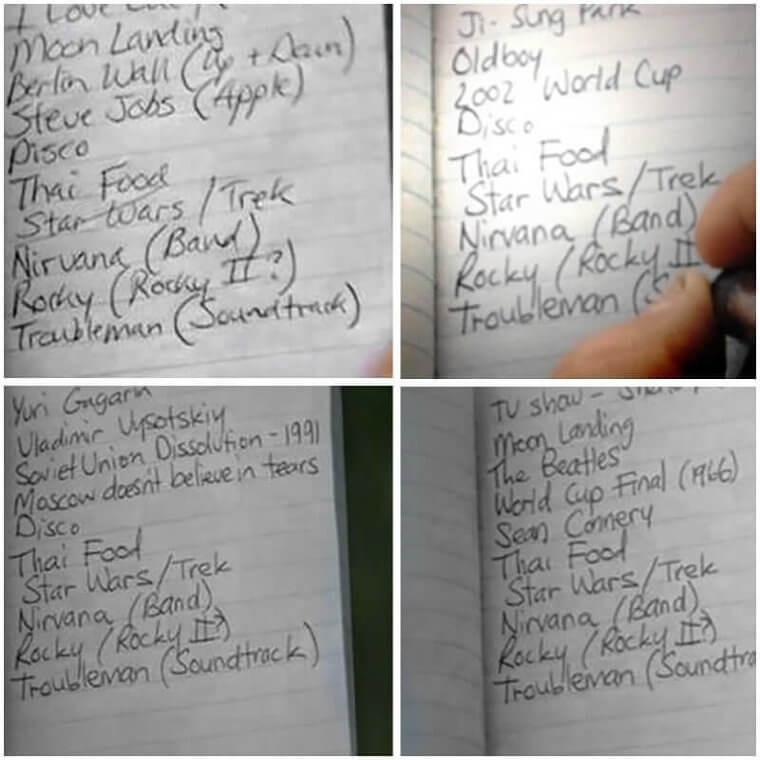 I Love
Moon Landing
Berlin Wall (Up + Down)
Steve Jobs (Apple)
Disco
Thai Food
Star Wars / Trek
Nirvana (Band)
Rocky (Rocky II?)
Troubleman (Soundtrack)
Ji-Sung Park
Oldboy
2002 World Cup
Disco
Thai Food
Star Wars/Trek
Nirvana (Band)
Rocky (Rocky II
Troubleman (S
Yuri Gagarin
Vladimir Vysotskiy
Soviet Union Dissolution - 1991
Moscow doesn't believe in tears
Disco
Thai Food
Star Wars/Trek
Nirvana (Band)
Rocky (Rocky II?)
Troubleman (Soundtrack)
TV show -
Moon Landing
The Beatles
World Cup Final (1966)
Sean Connery
Thai Food
Star Wars/Trek
Nirvana (Band)
Rocky (Rocky II?)
Troubleman (Soundtra